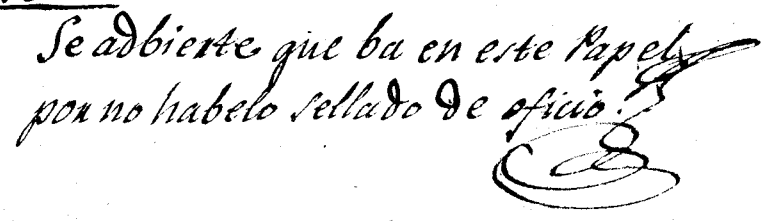 Se adbierte que ba en este Papel
por no habelo sellado de oficio.